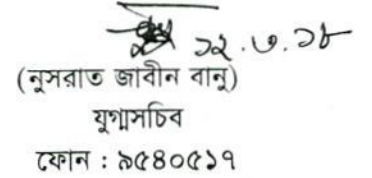 ১২.৩.১৮
(নুসরাত জাবীন বানু)
যুগ্মসচিব
ফোন : ৯৫৪০৫১৭